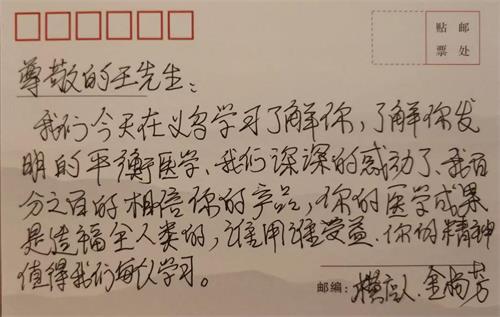 贴 邮
票 处
尊敬的王先生：
我们今天在义乌学习了解你，了解你发
明的平衡医学、我们深深的感动了、我百
分之百的相信你的产品，你的医学成果
是造福全人类的，谁用谁受益．你的精神
值得我们每人学习。
邮编：金尚芳